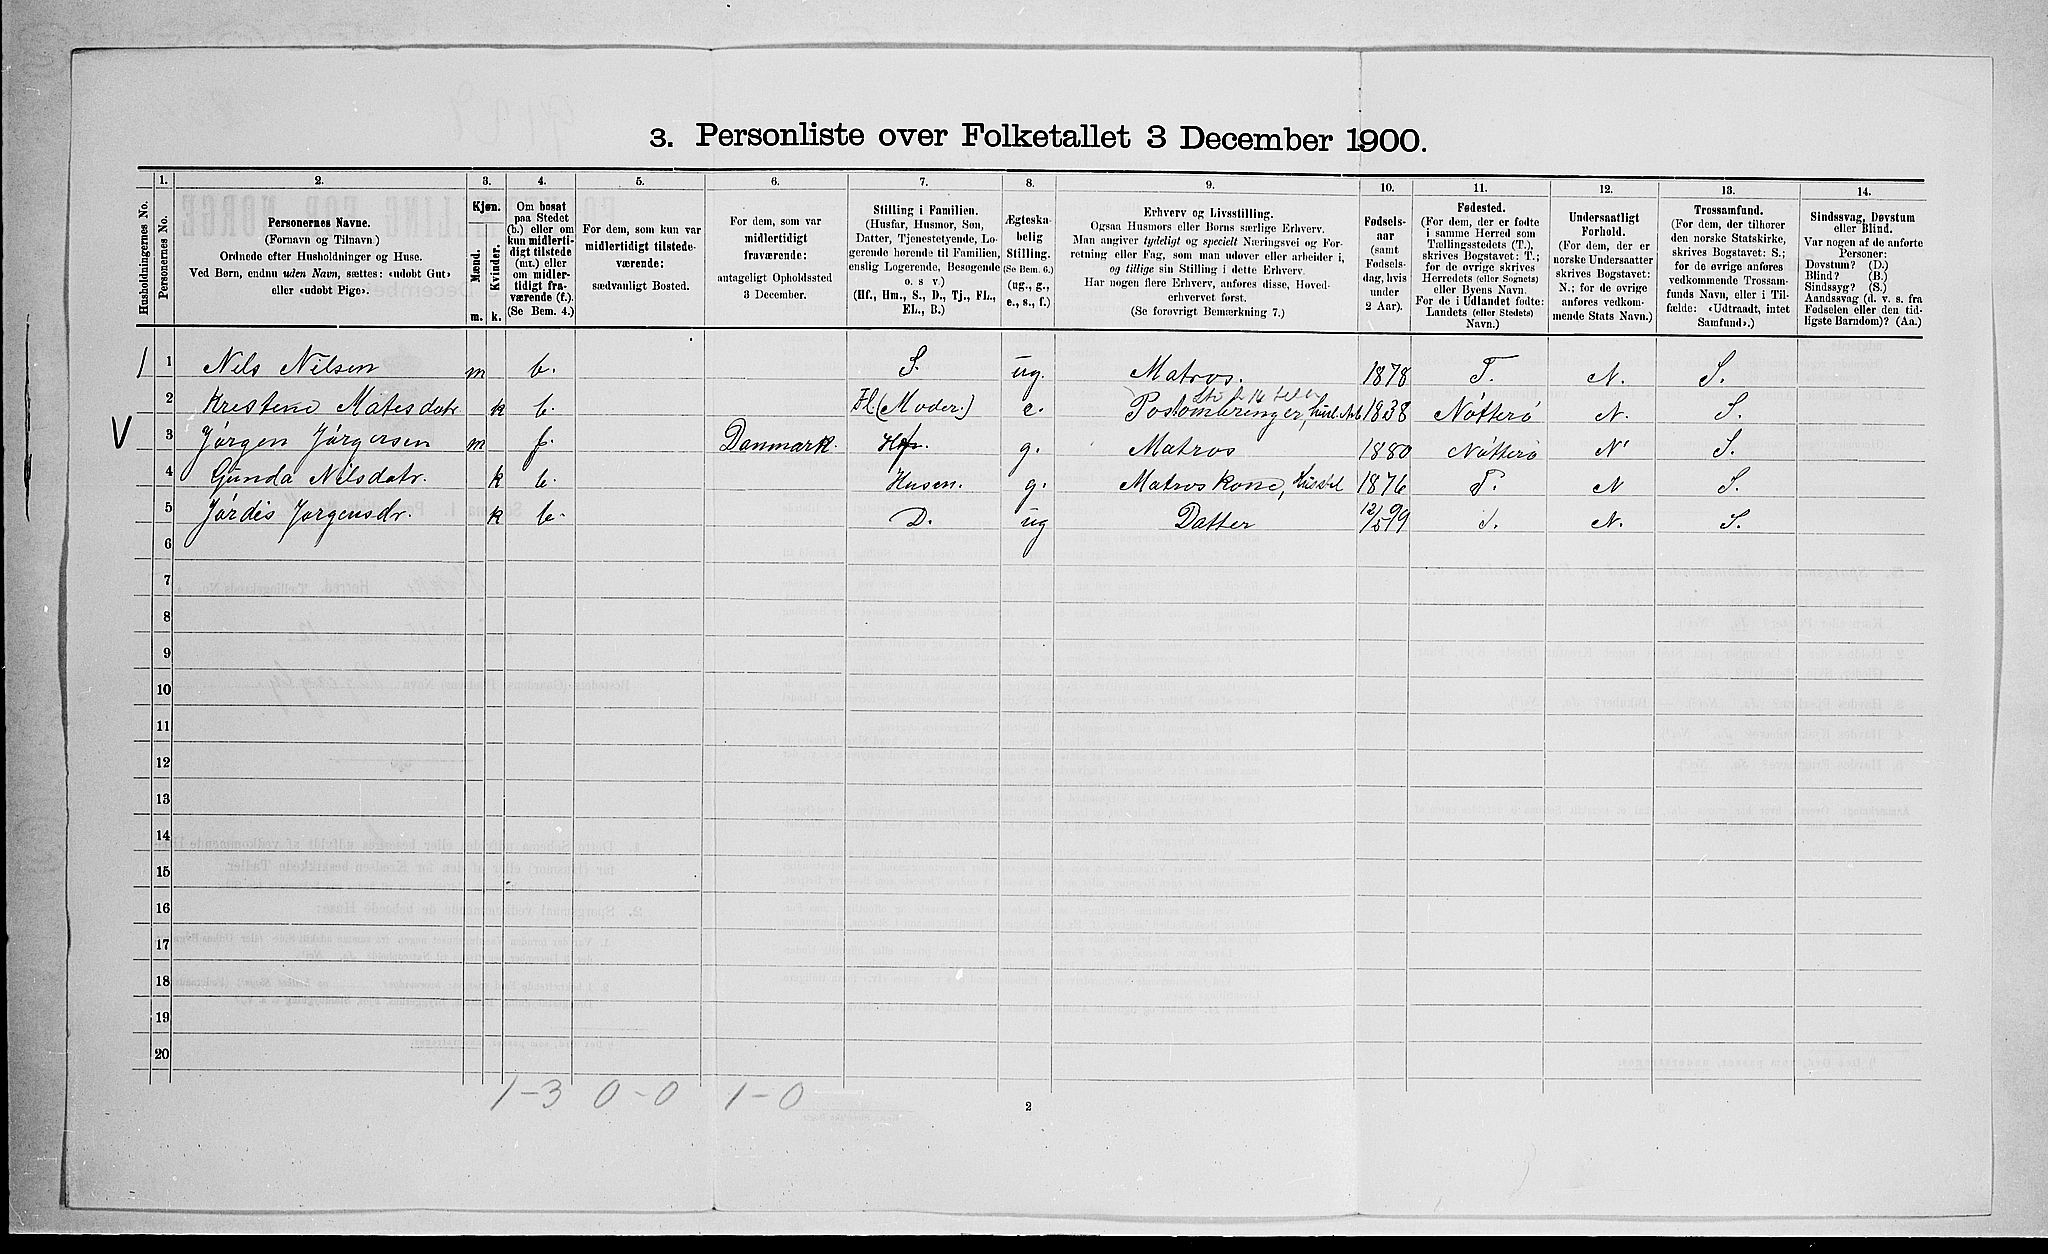 3. Personliste over Folketallet 3 December 1900.
1. 2. 3. 4. 5. 6. 7. 8. 9. 10. 11. 12. 13. 14.
Husholdningernes No.
Personernes No.
Personernes Navne.
(Fornavn og Tilnavn.)
Ordnede efter Husholdninger og Huse.
Ved Børn, endnu uden Navn, sættes: «udøbt Gut»
eller «udøbt Pige».
Kjøn.
Mænd.
Kvinder.
m. k.
Om bosat
paa Stedet
(b.) eller om
kun midlerti-
digt tilstede
(mt.) eller
om midler-
tidigt fra-
værende (f.).
(Se Bem. 4.)
For dem, som kun var
midlertidigt tilstede-
værende:
sædvanligt Bosted.
For dem, som var
midlertidigt
fraværende:
antageligt Opholdssted
3 December.
Stilling i Familien.
(Husfar, Husmor, Søn,
Datter, Tjenestetyende, Lo-
gerende hørende til Familien,
enslig Logerende, Besøgende
o. s. v.)
(Hf., Hm., S., D., Tj., FL.,
EL., B.)
Ægteska-
belig
Stilling.
(Se Bem. 6.)
(ug., g.,
e., s., f.)
Erhverv og Livsstilling.
Ogsaa Husmors eller Børns særlige Erhverv.
Man angiver tydeligt og specielt Næringsvei og For-
retning eller Fag, som man udøver eller arbeider i,
og tillige sin Stilling i dette Erhverv.
Har nogen flere Erhverv, anføres disse, Hoved-
erhvervet først.
(Se forøvrigt Bemærkning 7.)
Fødsels-
aar
(samt
Fødsels-
dag, hvis
under
2 Aar).
Fødested.
(For dem, der er fødte
i samme Herred som
Tællingsstedets (T.),
skrives Bogstavet: T.;
for de øvrige skrives
Herredets (eller Sognets)
eller Byens Navn.
For de i Udlandet fødte:
Landets (eller Stedets)
Navn.)
Undersaatligt
Forhold.
(For dem, der er
norske Undersaatter
skrives Bogstavet:
N.; for de øvrige
anføres vedkom-
mende Stats Navn.)
Trossamfund.
(For dem, der tilhører
den norske Statskirke,
skrives Bogstavet: S.;
for de øvrige anføres
vedkommende Trossam-
funds Navn, eller i Til-
fælde: «Udtraadt, intet
Samfund».)
Sindssvag, Døvstum
eller Blind.
Var nogen af de anførte
Personer:
Døvstum? (D.)
Blind? (B.)
Sindssyg? (S.)
Aandssvag (d. v. s. fra
Fødselen eller den tid-
ligste Barndom)? (Aa.)
1 1 Nils Nilsen m b. S. ug. Matros. 1878 T. N. S.
2 Kristene Matesdatr k b. Fl (Moder.) e. Postombringer, 1838 Nötterö N. S.
V 3 Jørgen Jørgensen m f. Danmark. Hf. g. Matros 1880 Nötterö N S.
4 Gunda Nilsdatr. k b. Husm. g. Matroskone, Husstel 1876 T. N S.
5 Jørdis Jørgensdr. k b. D. ug Datter 12/5 99 T. N. S.
6
7
8
9
10
11
12
13
14
15
16
17
18
19
20
1-3 0-0 1-0
2